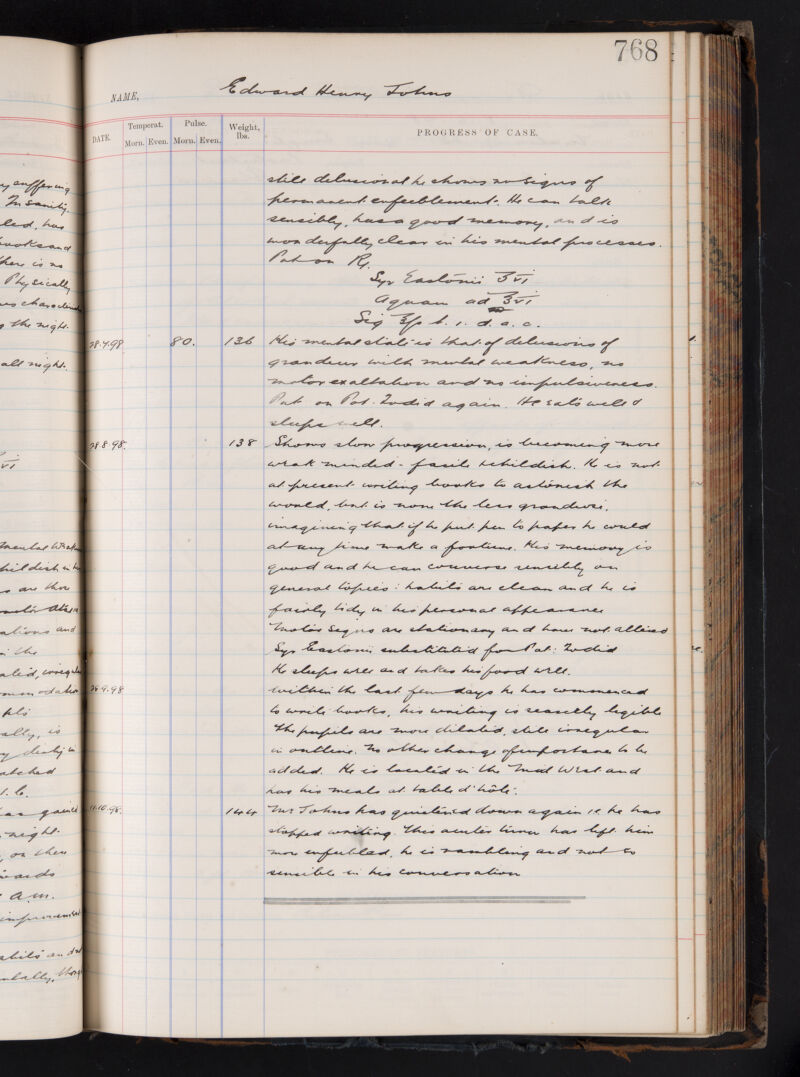 768
NAME, Edward Henry Johns
DATE. Temperat. Morn. Even. Pulse. Morn. Even. Weight, lbs. PROGRESS OF CASE.
still delusional he shows no signs of
permanent enfeeblement. He can talk
sensibly, has a good memory, and is
wonderfully clear in his mental processes.
Put on Rx.
Syr Eastonii ℥vi
Aquam ad ℥vi
Sig t. d. a. c.
28.7.98 80. 136 His mental state is that of delusions of
grandeur with mental weakness, no
motor exaltation and no impulsiveness.
Put on Pot. Iodid again. He eats well &
sleeps well.
28.8.98. 138 Shows slow progression, is becoming more
weak minded - facile & childish. He is not
at present writing books to astonish the
world, but is none the less grandiose,
imagining that if he put pen to paper he could
at any time make a fortune. His memory is
good and he can converse sensibly on
general topics: habits are clean and he is
fairly tidy in his personal appearance
Motor signs are stationary and have not altered
Syr Eastonii substituted for Pot: Iodid
He sleeps well and takes his food well.
28.9.98 Within the last few days he has commenced
to write books, his writing is scarcely legible
The pupils are more dilated, still irregular
in outline. No other change of importance to be
added. He is located in the Mid West and
has his meals at table d'hôte.
11.10.98. 144 Mr Johns has quietened down again i.e. he has
stopped writing. This acuter time has left him
more enfeebled, he is rambling and not so
sensible in his conversation